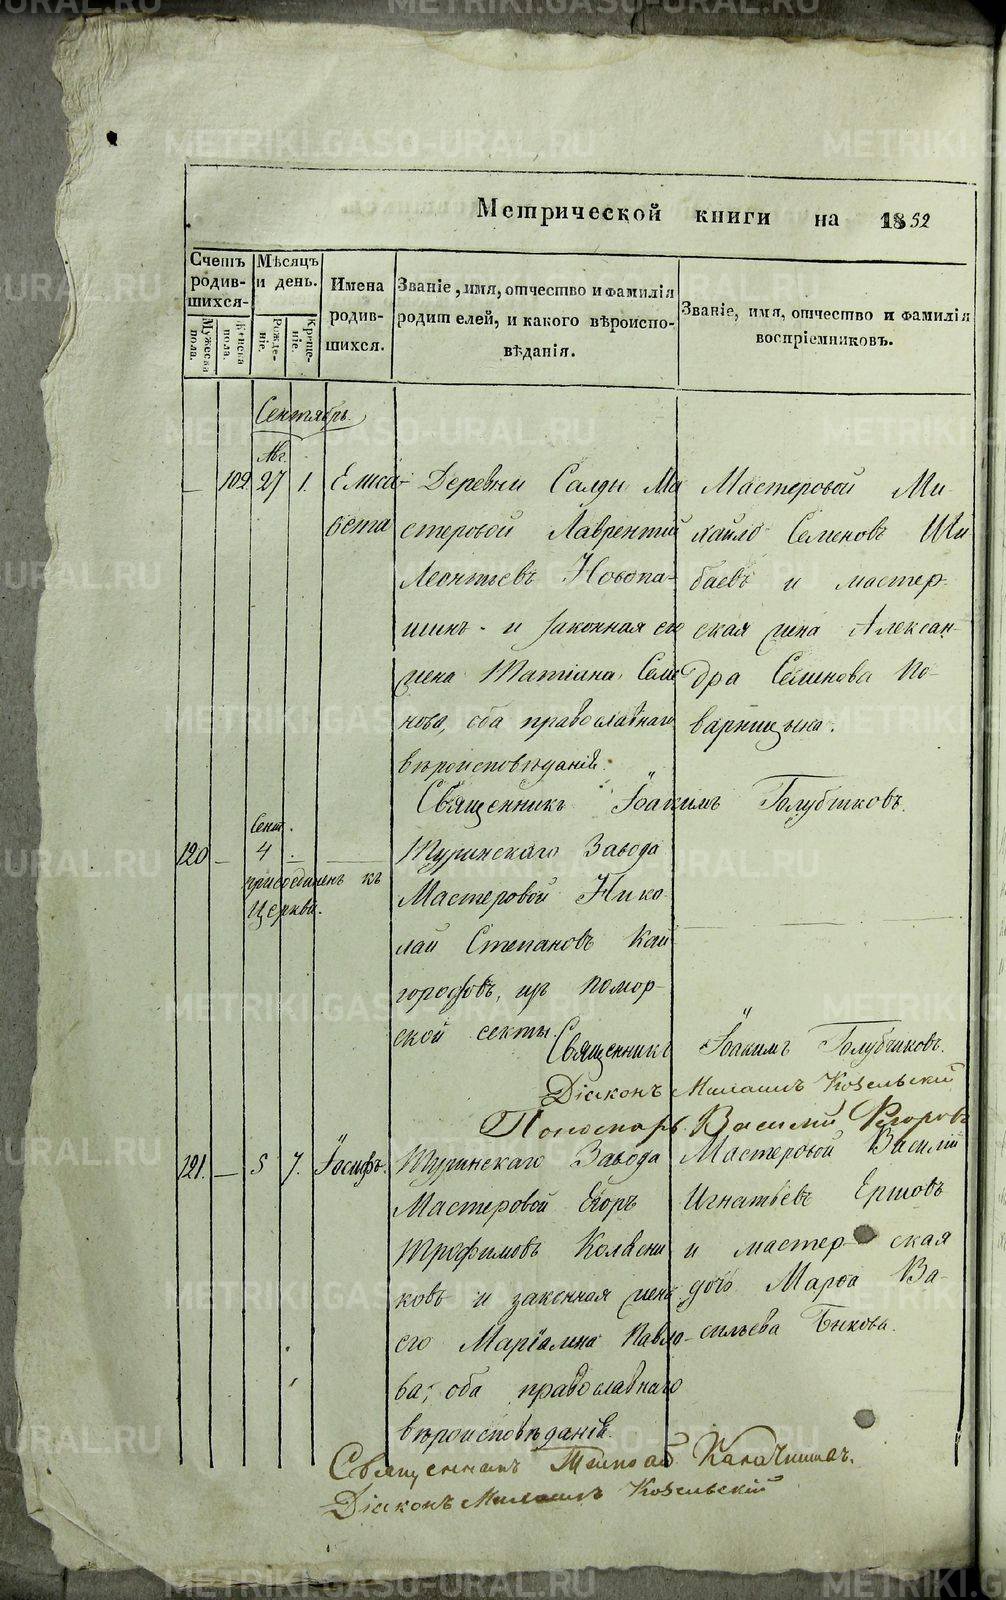 METRIKI.GASO-URAL.RU
Метрической книги на 1852
Счетъ родившихся.
Мѣсяцъ и день.
Мужеска пола.
Женска пола.
Рожденіе.
Крещеніе.
Имена родившихся.
Званіе, имя, отчество и фамилія родителей, и какого вѣроисповѣданія.
Званіе, имя, отчество и фамилія воспріемниковъ.
Сентябрь.
109 27 1. Елиса-
бета
Деревни Салды Ма
стеровой Лаврентій
Леонтьевъ Новопа-
шинъ и законная его
жена Татіана Семе
нова, оба православнаго
вѣроисповѣданія.
Мастеровой Ми-
хайло Семеновъ Ши
баевъ и мастер-
ская жена Алексан-
дра Семенова По-
варницына.
Священникъ Іоакимъ Голубчиковъ.
Сент.
120 — 4 —
присоединенъ къ
Церкви.
Туринскаго Завода
Мастеровой Нико
лай Степановъ Кай
городовъ, изъ помор-
ской секты.
Священникъ Іоакимъ Голубчиковъ.
Діаконъ Михаилъ Козельскій
Пономарь Василій Егоровъ
121. — 5 7. Іосифъ.
Туринскаго Завода
Мастеровой Егоръ
Трофимовъ Колясни
ковъ и законная жена
его Маріамна Павло-
ва, оба православнаго
вѣроисповѣданія.
Мастеровой Василій
Игнатьевъ Ершовъ
и мастерская
дочь Марѳа Ва-
сильева Быкова.
Священникъ
Діаконъ Михаилъ Козельскій